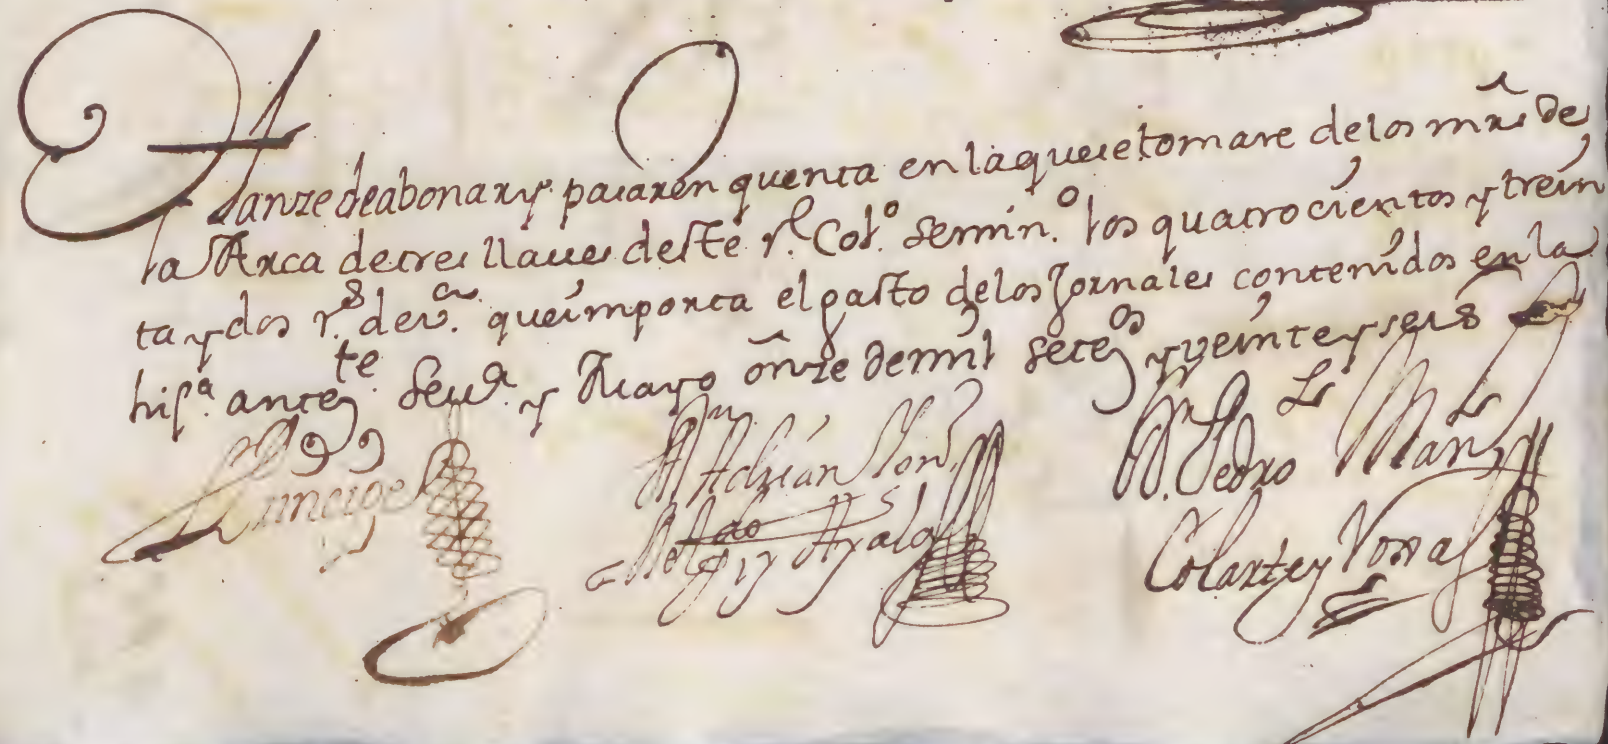 Hanze de abonar y pasar en quenta en la que se tomare de los mrs. de
la Arca de tres llaves deste rl. Colo. Semino. los quatrocientos y trein
ta y dos rs. de von. que importa el gasto de los Jornales contenidos en la
hisa. antete. Seva. y Mayo onze de mil seteos y veinte y seis
Principe Dn. Adrian Dn. Pedro Manl
Melgo y Ayala Colarte y